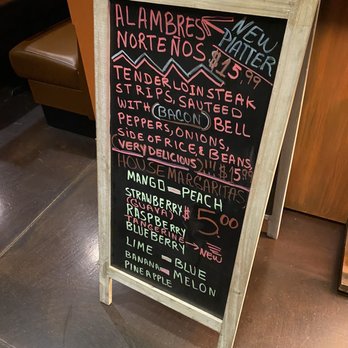 ALAMBRES NEW
NORTEÑOS PLATTER
$15.99
TENDERLOIN STEAK
STRIPS, SAUTEED
WITH BACON BELL
PEPPERS, ONIONS,
SIDE OF RICE & BEANS
VERY DELICIOUS!!! $15.99
HOUSE MARGARITAS
MANGO - PEACH
STRAWBERRY $5.00
(GUAVA)
RASPBERRY
TANGERINE → NEW
BLUEBERRY
LIME - BLUE
BANANA - MELON
PINEAPPLE